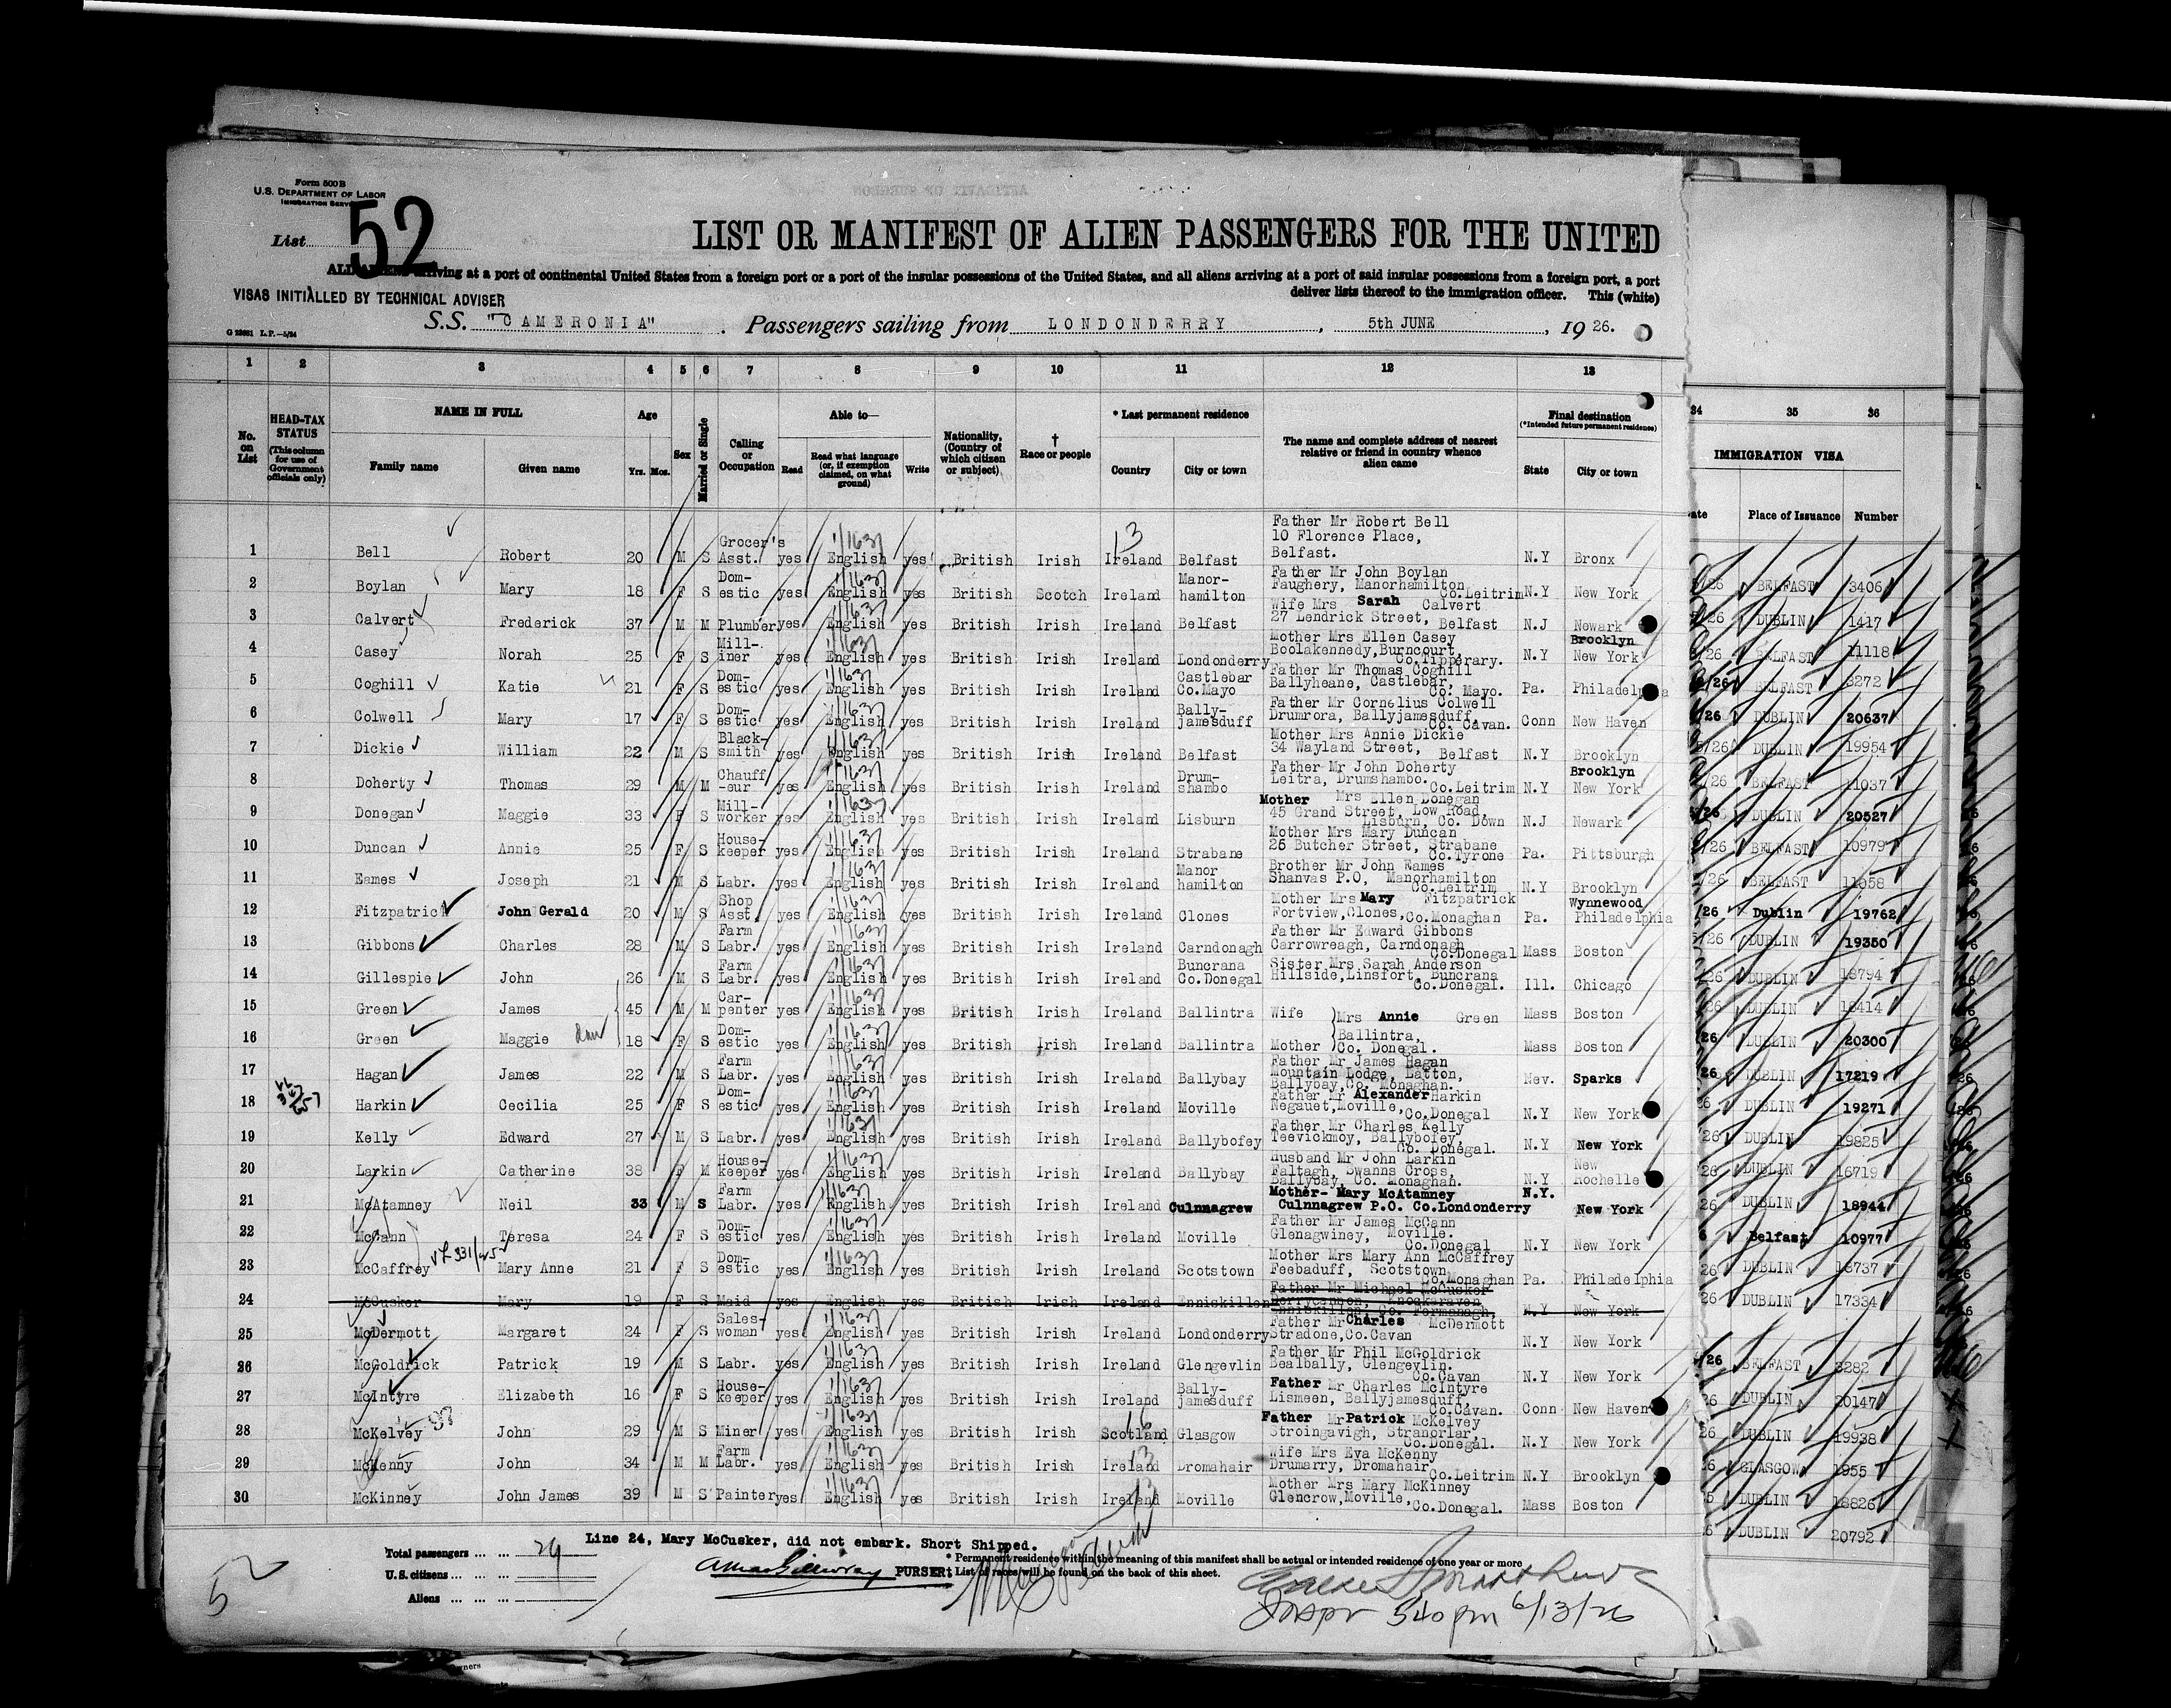 Form 500 B
U.S. DEPARTMENT OF LABOR
IMMIGRATION SERVICE
List 52
LIST OR MANIFEST OF ALIEN PASSENGERS FOR THE UNITED
ALL ALIENS arriving at a port of continental United States from a foreign port or a port of the insular possessions of the United States, and all aliens arriving at a port of said insular possessions from a foreign port, a port
deliver lists thereof to the immigration officer. This (white)
VISAS INITIALLED BY TECHNICAL ADVISER
S.S. "CAMERONIA" . Passengers sailing from LONDONDERRY , 5th JUNE , 19 26.
1 2 3 4 5 6 7 8 9 10 11 12 13 34 35 36
No. on List
HEAD-TAX STATUS (This column for use of Government officials only)
NAME IN FULL
Family name Given name
Age Yrs. Mos.
Sex
Married or Single
Calling or Occupation
Able to— Read Read what language (or, if exemption claimed, on what ground) Write
Nationality. (Country of which citizen or subject)
† Race or people
* Last permanent residence Country City or town
The name and complete address of nearest relative or friend in country whence alien came
Final destination (*Intended future permanent residence) State City or town
IMMIGRATION VISA
Place of Issuance Number
1 Bell Robert 20 M S Grocer's Asst. yes English yes British Irish Ireland Belfast Father Mr Robert Bell 10 Florence Place, Belfast. N.Y Bronx
2 Boylan Mary 18 F S Domestic yes English yes British Scotch Ireland Manor-hamilton Father Mr John Boylan Faughery, Manorhamilton Co.Leitrim N.Y New York /26 BELFAST 3406
3 Calvert Frederick 37 M M Plumber yes English yes British Irish Ireland Belfast Wife Mrs Sarah Calvert 27 Lendrick Street, Belfast N.J Newark /26 DUBLIN 1417
4 Casey Norah 25 F S Mill-iner yes English yes British Irish Ireland Londonderry Mother Mrs Ellen Casey Boolakennedy, Burncourt, Co.Tipperary. N.Y Brooklyn New York /26 BELFAST 11118
5 Coghill Katie 21 F S Dom-estic yes English yes British Irish Ireland Castlebar Co.Mayo Father Mr Thomas Coghill Ballyheane, Castlebar, Co. Mayo. Pa. Philadelphia /26 BELFAST 3272
6 Colwell Mary 17 F S Dom-estic yes English yes British Irish Ireland Bally-jamesduff Father Mr Cornelius Colwell Drumrora, Ballyjamesduff, Co. Cavan. Conn New Haven /26 DUBLIN 20637
7 Dickie William 22 M S Black-smith yes English yes British Irish Ireland Belfast Mother Mrs Annie Dickie 34 Wayland Street, Belfast N.Y Brooklyn /26 DUBLIN 19954
8 Doherty Thomas 29 M M Chauff-eur yes English yes British Irish Ireland Drum-shambo Father Mr John Doherty Leitra, Drumshambo. Co.Leitrim N.Y Brooklyn New York /26 BELFAST 11037
9 Donegan Maggie 33 F S Mill-worker yes English yes British Irish Ireland Lisburn Mother Mrs Ellen Donegan 45 Grand Street, Low Road, Lisburn, Co. Down N.J Newark /26 DUBLIN 20527
10 Duncan Annie 25 F S House-keeper yes English yes British Irish Ireland Strabane Mother Mrs Mary Duncan 25 Butcher Street, Strabane Co.Tyrone Pa. Pittsburgh /26 BELFAST 10979
11 Eames Joseph 21 M S Labr. yes English yes British Irish Ireland Manor hamilton Brother Mr John Eames Shanvas P.O, Manorhamilton Co.Leitrim N.Y Brooklyn /26 BELFAST 11058
12 Fitzpatrick John Gerald 20 M S Shop Asst. yes English yes British Irish Ireland Clones Mother Mrs Mary Fitzpatrick Fortview, Clones, Co.Monaghan Pa. Wynnewood Philadelphia /26 Dublin 19762
13 Gibbons Charles 28 M S Farm Labr. yes English yes British Irish Ireland Carndonagh Father Mr Edward Gibbons Carrowreagh, Carndonagh Co.Donegal Mass Boston /26 DUBLIN 19350
14 Gillespie John 26 M S Farm Labr. yes English yes British Irish Ireland Buncrana Co.Donegal Sister Mrs Sarah Anderson Hillside, Linsfort, Buncrana Co.Donegal. Ill. Chicago 26 DUBLIN 18794
15 Green James 45 M M Car-penter yes English yes British Irish Ireland Ballintra Wife Mrs Annie Green Mass Boston 26 DUBLIN 18414
16 Green Maggie 18 F S Dom-estic yes English yes British Irish Ireland Ballintra Mother Ballintra, Co. Donegal. Mass Boston 26 DUBLIN 20300
17 Hagan James 22 M S Farm Labr. yes English yes British Irish Ireland Ballybay Father Mr James Hagan Mountain Lodge, Latton, Ballybay, Co. Monaghan. Nev. Sparks 26 DUBLIN 17219
18 Harkin Cecilia 25 F S Dom-estic yes English yes British Irish Ireland Moville Father Mr Alexander Harkin Negauet, Moville, Co.Donegal N.Y New York 26 DUBLIN 19271
19 Kelly Edward 27 M S Labr. yes English yes British Irish Ireland Ballybofey Father Mr Charles Kelly Teevickmoy, Ballybofey, Co. Donegal. N.Y New York 26 DUBLIN 19825
20 Larkin Catherine 38 F M House-keeper yes English yes British Irish Ireland Ballybay Husband Mr John Larkin Faltagh, Swanns Cross, Ballybay, Co. Monaghan. N.Y New Rochelle 26 DUBLIN 16719
21 McAtamney Neil 33 M S Farm Labr. yes English yes British Irish Ireland Culnnagrew Mother- Mary McAtamney Culnnagrew P.O. Co.Londonderry N.Y. New York 26 DUBLIN 18944
22 McCann Teresa 24 F S Dom-estic yes English yes British Irish Ireland Moville Father Mr James McCann Glenagwiney, Moville. Co.Donegal N.Y New York 6 Belfast 10977
23 McCaffrey Mary Anne 21 F S Dom-estic yes English yes British Irish Ireland Scotstown Mother Mrs Mary Ann McCaffrey Feebaduff, Scotstown Co.Monaghan Pa. Philadelphia 26 DUBLIN 18737
24 McCusker Mary 19 F S Maid yes English yes British Irish Ireland Enniskillen Father Mr Michael McCusker Knockaraven Enniskillen, Co. Fermanagh, N.Y New York 26 DUBLIN 17334
25 McDermott Margaret 24 F S Sales-woman yes English yes British Irish Ireland Londonderry Father Mr Charles McDermott Stradone, Co.Cavan N.Y New York
26 McGoldrick Patrick 19 M S Labr. yes English yes British Irish Ireland Glengevlin Father Mr Phil McGoldrick Bealbally, Glengevlin. Co.Cavan N.Y New York /26 BELFAST 3282
27 McIntyre Elizabeth 16 F S House-keeper yes English yes British Irish Ireland Bally-jamesduff Father Mr Charles McIntyre Lismeen, Ballyjamesduff, Co.Cavan. Conn New Haven 26 DUBLIN 20147
28 McKelvey John 29 M S Miner yes English yes British Irish Scotland Glasgow Father Mr Patrick McKelvey Stroingavigh, Stranorlar, Co.Donegal. N.Y New York 26 DUBLIN 19938
29 McKenny John 34 M M Farm Labr. yes English yes British Irish Ireland Dromahair Wife Mrs Eva McKenny Drumarry, Dromahair Co.Leitrim N.Y Brooklyn 26 GLASGOW 1955
30 McKinney John James 39 M S Painter yes English yes British Irish Ireland Moville Mother Mrs Mary McKinney Glencrow, Moville, Co.Donegal. Mass Boston DUBLIN 18826
6 DUBLIN 20792
Line 24, Mary McCusker, did not embark. Short Shipped.
Total passengers ... ... 29
U.S. citizens ... ...
Aliens ... ... ...
PURSER:
* Permanent residence within the meaning of this manifest shall be actual or intended residence of one year or more
† List of races will be found on the back of this sheet.
Inspr 540 pm 6/13/26
52